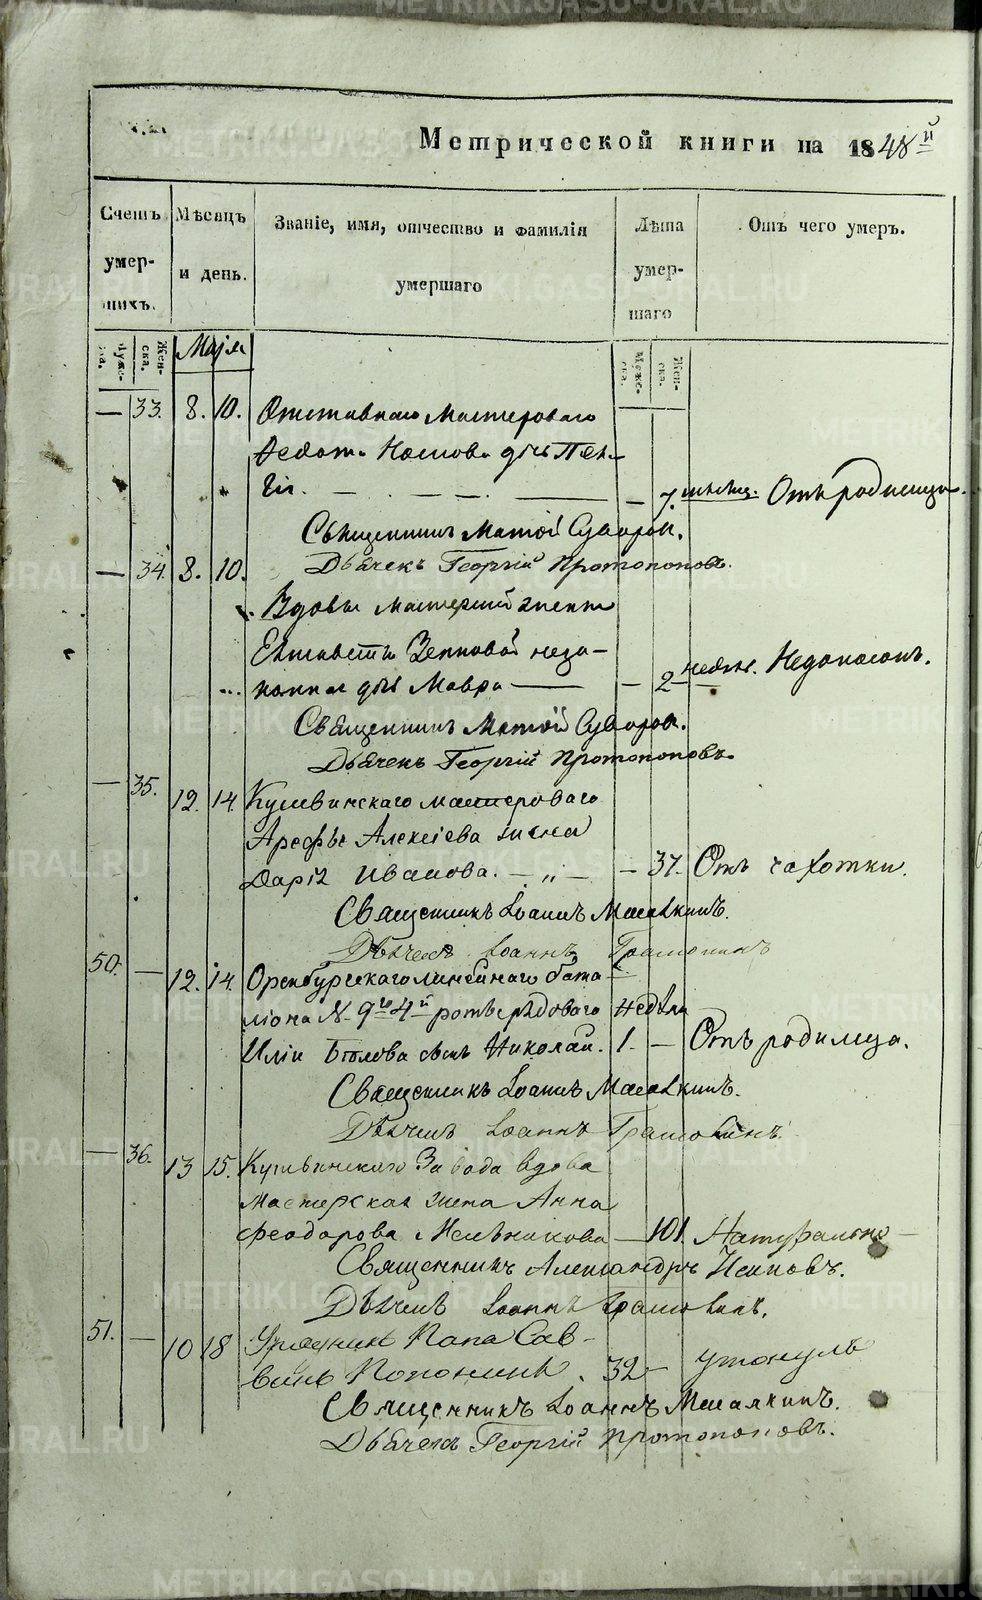 METRIKI.GASO-URAL.RU
Метрической книги на 1848й
Счетъ умерших.
Мѣсяцъ и день.
Званіе, имя, отчество и фамилія умершаго
Лѣта умершаго
Отъ чего умеръ.
Мужеска.
Женска.
Маія
Мужеска.
Женска.
— 33. 8. 10. Отставнаго мастероваго
Ѳедота Носкова дочь
— 7. месяц. Отъ родимца.
Священникъ Матѳій Суворов.
Дьячекъ Георгій Протопоповъ.
— 34. 8. 10.
Вдовы мастерской жены
Елисаветы неза-
конная дочь Мавра — — 2 недели.
Священникъ Матѳій Суворов.
Дьячекъ Георгій Протопоповъ.
— 35. 12. 14. Кушвинскаго мастероваго
Арефы Алексіева жена
Дарія Иванова. — „ — — 37. Отъ чахотки.
Священникъ Іоаннъ
Дьячекъ Іоаннъ
50. — 12. 14. Оренбургскаго линейнаго бата-
ліона № 9го 4й роты рядоваго недѣли
Иліи сынъ Николай. 1. — Отъ родимца.
Священникъ Іоаннъ
Дьячекъ Іоаннъ
— 36. 13 15. Кушвинскаго Завода вдова
мастерская жена Анна
Феодорова Мельникова — 101. Натурально
Священникъ Александръ
Дьячекъ Іоаннъ
51. — 10 18 Урядникъ Сав-
винъ 32 — утонулъ
Священникъ Іоаннъ
Дьячекъ Георгій Протопоповъ.